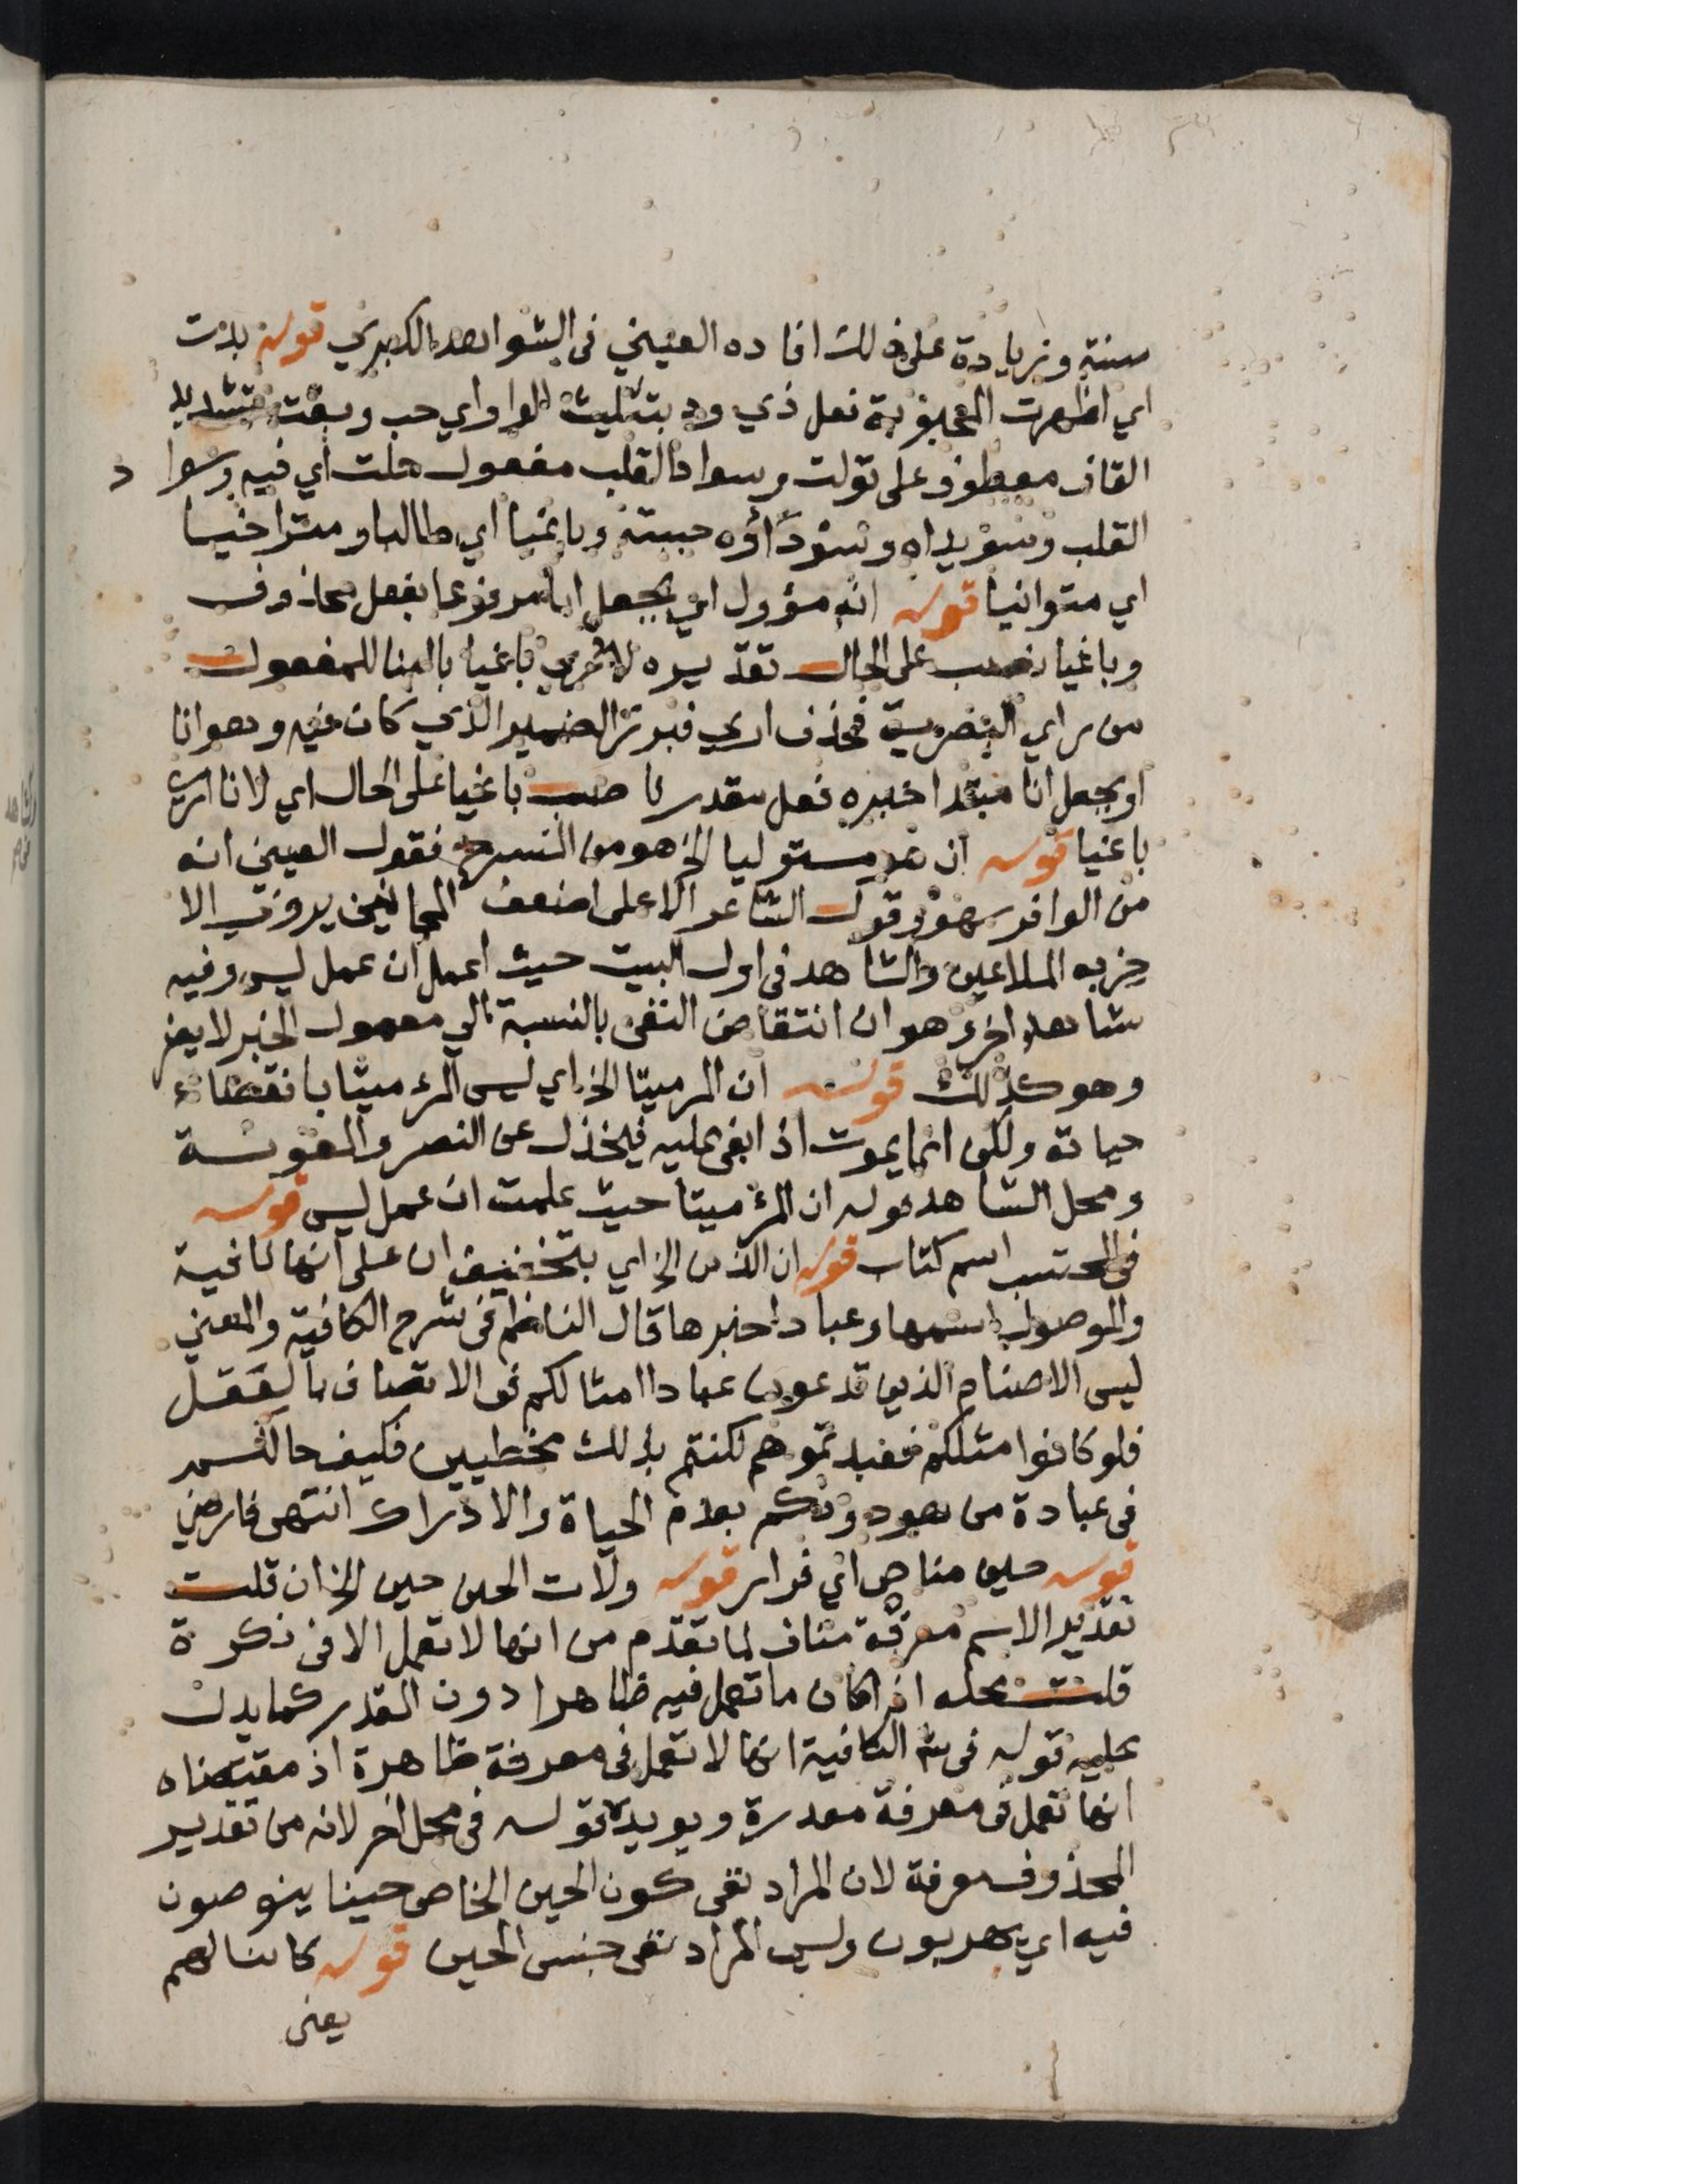 سنة وزيادة على ذلك افاده العيني في الشواهد الكبرى قوله بدت
اي اظهرت المحبوبة فعل ذي ود بتثليث الواو اي حب وبقت بتشديد
القاف معطوف على تولت وسواد القلب مفعول حلت اي فيه وسواد
القلب وسويداه وسوداؤه حبته وباغيا اي طالبا ومتراخيا
اي متوانيا قوله انه مؤول اي بجعل انا مرفوعا بفعل محذوف
وباغيا نصب على الحال تقديره لا ارى باغيا بالبنا للمفعول
من راي البصرية فحذف ارى فبرز الضمير الذي كان فيه وهو انا
او بجعل انا مبتدا خبره فعل مقدر ناصب باغيا على الحال اي لا انا ارى
باغيا قوله ان هو مستوليا الخ هو من المنسرح فقول العيني انه
من الوافر سهو وقول الشاعر الا على اضعف المجانين يروى الا
حزبه الملاعين والشاهد في اول البيت حيث اعمل ان عمل ليس وفيه
شاهد اخر وهو ان انتقاض النفي بالنسبة الى معمول الخبر لا يضر
وهو كذلك قوله ان المر ميتا الخ اي ليس المرء ميتا بانقضاء
حياته ولكن انما يموت اذا بغى عليه فيخذل عن النصر والعون
ومحل الشاهد قوله ان المرء ميتا حيث علمت ان عمل ليس قوله
في المحتسب اسم كتاب قوله ان الذين الخ اي بتخفيف ان على انها نافية
والموصول اسمها وعبادا خبرها قال الناظم في شرح الكافية والمعنى
ليس الاصنام الذين تدعون عبادا امثالكم في الاتصاف بالعقل
فلو كانوا مثلكم فعبدتموهم لكنتم بذلك مخطيين فكيف حالكم
في عبادة من هو دونكم بعدم الحياة والادراك انتهى فارضي
قوله حين مناص اي فرار قوله ولات الحين حين الخ ان قلت
تقدير الاسم معرفة مناف لما تقدم من انها لا تعمل الا في نكرة
قلت محله اذا كان ما تعمل فيه ظاهرا دون المقدر كما يدل
عليه قوله في ش الكافية انها لا تعمل في معرفة ظاهرة اذ مقتضاه
انها تعمل في معرفة مقدرة ويويده قوله في محل اخر لانه من تقدير
المحذوف معرفة لان المراد نفي كون الحين الخاص حينا ينوصون
فيه اي يهربون وليس المراد نفي جنس الحين قوله كائنا لهم
يعني